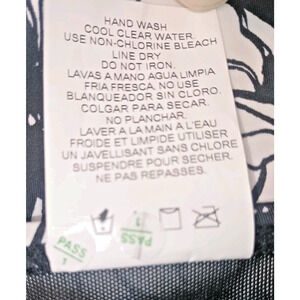 HAND WASH
COOL CLEAR WATER.
USE NON-CHLORINE BLEACH
LINE DRY
DO NOT IRON.
LAVAS A MANO AGUA LIMPIA
FRIA FRESCA. NO USE
BLANQUEADOR SIN CLORO.
COLGAR PARA SECAR.
NO PLANCHAR.
LAVER A LA MAIN A L'EAU
FROIDE ET LIMPIDE UTILISER
UN JAVELLISANT SANS CHLORE
SUSPENDRE POUR SECHER.
NE PAS REPASSES.
PASS
1
PASS
1